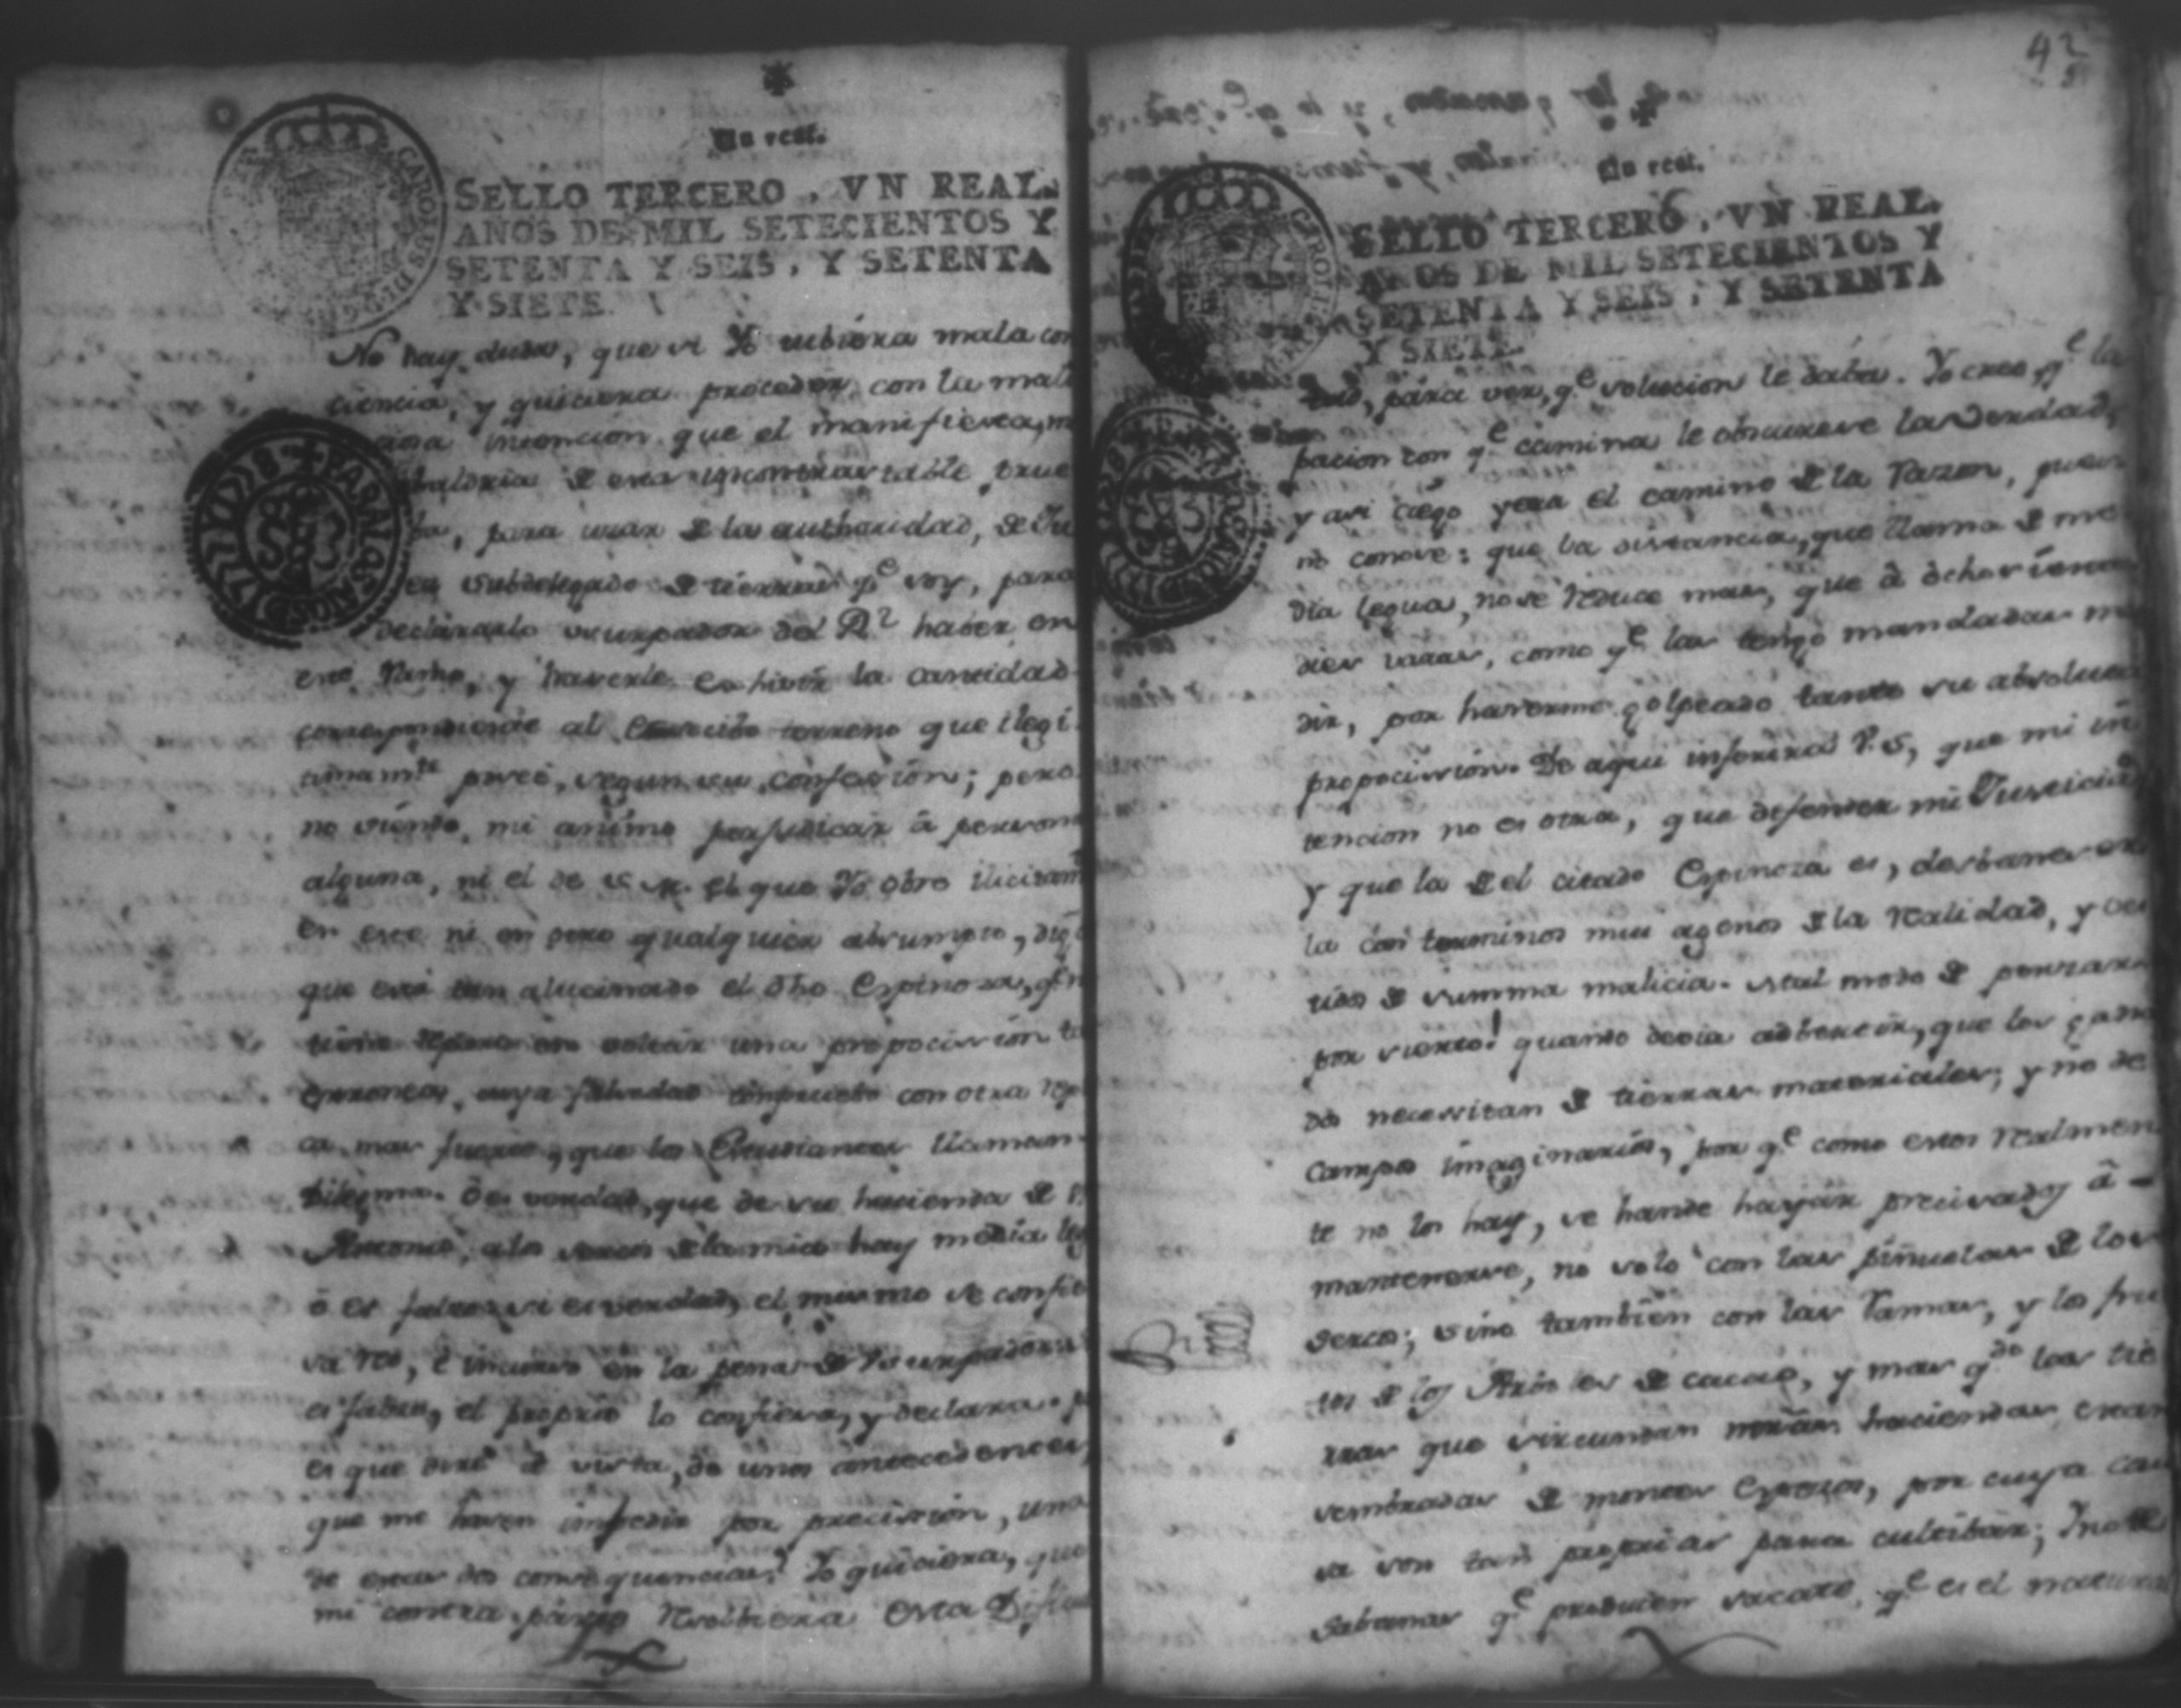 Un real.
SELLO TERCERO, VN REAL.
AÑOS DE MIL SETECIENTOS Y
SETENTA Y SEIS, Y SETENTA
Y SIETE.
No hay duda, que si Yo ubiera mala con
ciencia, y quiciera proceder con la mali
intencion que el manifiesta, me
de esta incontrastable prue
ba, para usar de la authoridad, de Ju
ez Subdelegado de tierras q.e soy, para
declararlo usurpador del R.l haber en
este Ramo, y haverle exhivir la cantidad
correspondiente al terreno que ilegi
timam.te posee, segun su confession; pero
no siendo mi animo perjudicar â persona
alguna, ni el de q Yo obre ilicitam.te
en este ni en otro qualquier assumpto, digo
que está tan alucinado el dho Espinoza, q.e n
reparo en soltar una propocission ta
erronea, cuya falsedad compruebo con otra
ca mas fuerte, que los Estudiantes llaman
Dilema. O es verdad, que de su hacienda de S.n
Antonio, a los de la mia hay media leg
ô es falso: si es verdad, el mismo se confie
sa reo, è incurso en la pena de Usurpador: si
es falso, el proprio lo confiesa, y declara. p
es que diré â vista, de unos antecedentes,
que me hacen por precission, una
de estas dos consequencias? Yo quiciera, que
mi contra parte resolbiera esta Dificul
42
Un real.
SELLO TERCERO, VN REAL.
AÑOS DE MIL SETECIENTOS Y
SETENTA Y SEIS, Y SETENTA
Y SIETE.
tad, para ver, q.e solucion le daba. Yo creo, q.e la
pacion con q.e camina le obscurese la Verdad,
y asi ciego yerra el camino de la Razon, pues
no conose: que la distancia, que llama de me
dia legua, no se reduce mas, que â ochocientas
dies varas, como q.e las tengo mandadas me
dir, por haverme golpeado tanto su absoluta
propocission. De aqui inferirá V.S, que mi in
tencion no es otra, que defender mi Justicia,
y que la de el citado Espinoza es, desbanecer
la con terminos mui agenos de la realidad, y ves
tidos de summa malicia. Mal modo de pensar
por cierto! quando devia adbertir, que los gana
dos necessitan de tierras materiales; y no de
campos imaginarios, por q.e como estos realmen
te no los hay, se hande hayar precisados â
mantenerse, no solo con las piñuelas de los
sercos; sino tambien con las Ramas, y los fru
tos de los Arboles de cacao, y mas q.do las tie
rras que sircundan haciendas estan
sembradas de montes Espesos, por cuya cau
sa son tan proprias para cultibar; Y no de
Sabanas q.e producen sacate, q.e es el natural